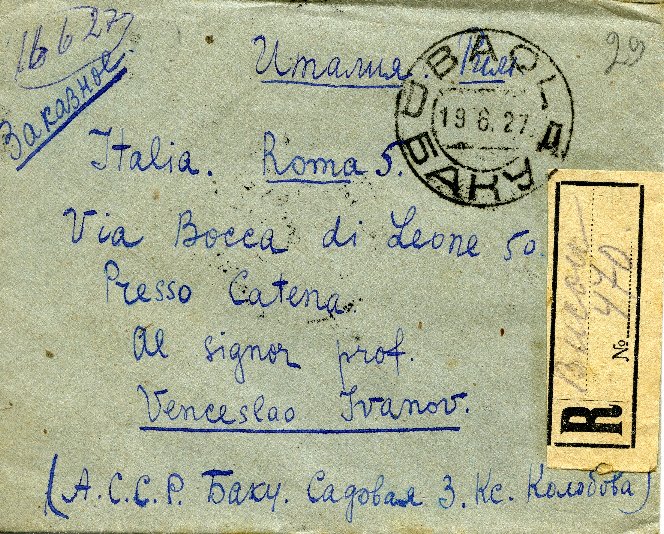 16 6 27
Заказное.
Италия. Рим
29
BAQU
19.6.27.
БАКУ
Italia. Roma 5.
Via Bocca di Leone 50.
Presso Catena
Al signor prof.
Venceslao Ivanov.
R
№ 470
(А.С.С.Р. Баку. Садовая 3. Кс. Колобова)